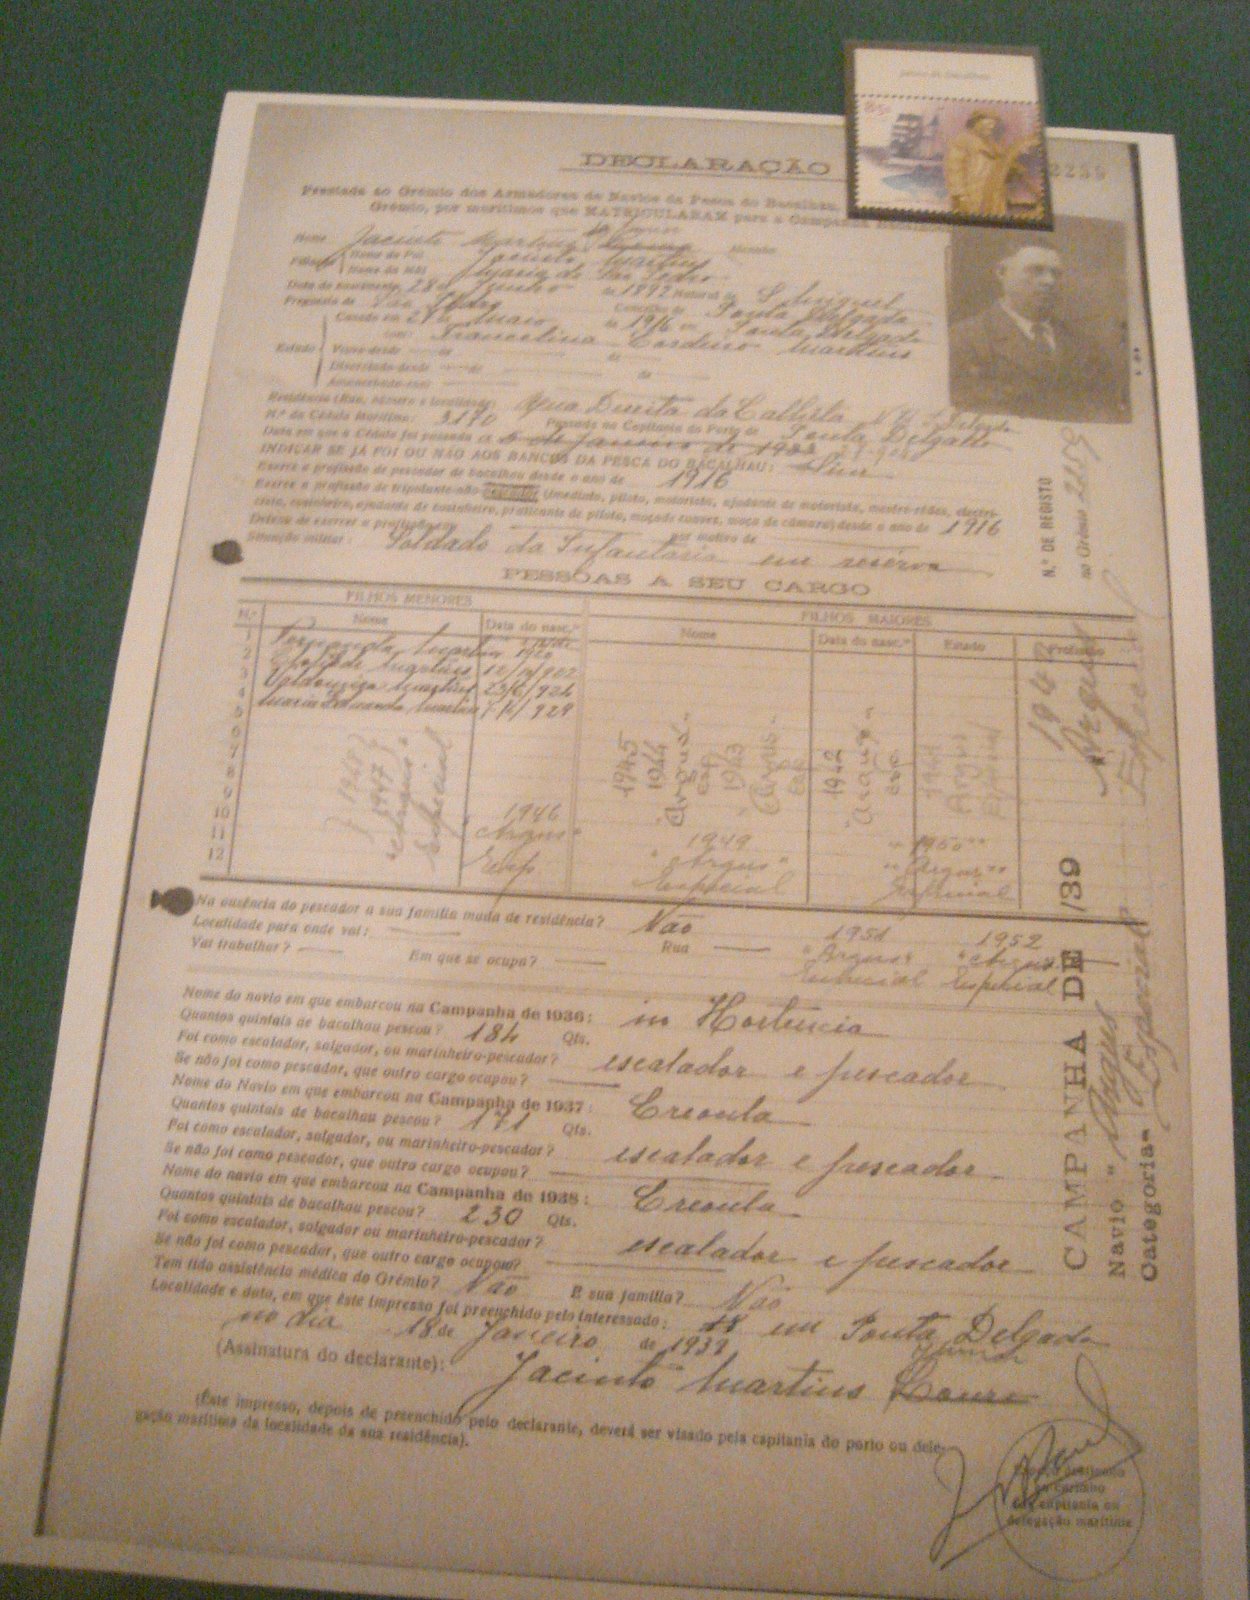 85c
DECLARAÇÃO
2259
Prestada ao Grémio dos Armadores de Navios da Pesca do Bacalhau
Grémio, por marítimos que MATRICULARAM para a Campanha
Nome Jacinto Martins
Filiação
Nome do Pai Jacinto Martins
Nome da Mãi Maria de São Pedro
Data do nascimento 28 de Junho de 1892 Natural de S. Miguel
Freguesia de São Pedro Concelho de Ponta Delgada
Estado
Casado em 27 de Maio de 1916 em Ponta Delgada
com: Francelina Cordeiro Martins
Viuvo desde de de
Divorciado desde de de
Amancebado com:
Residência (Rua, número e localidade) Rua Direita da Calheta P. Delgada
N.º da Cédula Marítima: 3170 Passada na Capitania do Porto de Ponta Delgada
Data em que a Cédula foi passada a 6 de Janeiro de
INDICAR SE JÁ FOI OU NÃO AOS BANCOS DA PESCA DO BACALHAU: Sim
Exerce a profissão de pescador de bacalhau desde o ano de 1916
Exerce a profissão de tripulante não pescador (imediato, piloto, motorista, ajudante de motorista, mestre-rêdes, electri-
cista, cozinheiro, ajudante de cozinheiro, praticante de piloto, moço de convez, moço de câmara) desde o ano de 1916
Deixou de exercer a profissão em por motivo de
Situação militar: Soldado da Infantaria em reserva
N.º DE REGISTO
no Grémio 2259
PESSOAS A SEU CARGO
FILHOS MENORES
FILHOS MAIORES
N.º Nome Data do nasc.to Nome Data do nasc.to Estado Profissão
1 Fernanda Martins
2 Martins
3 Martins
4 Maria Martins
5
6
7
8
9
10
11
12
1948
1947
"Argus"
Especial
1946
"Argus"
Esp.
1945
1944
"Argus"
esp
1943
"Argus"
esp
1949
"Argus"
Especial
1942
"Argus"
esp
1941
Argus
Especial
1950
"Argus"
Especial
Argus
Especial
Na ausência do pescador a sua família muda de residência? Não
Localidade para onde vai: Rua
Vai trabalhar? Em que se ocupa?
1951
"Argus"
Especial
1952
"Argus"
Especial
Nome do navio em que embarcou na Campanha de 1936: Hortencia
Quantos quintais de bacalhau pescou? 184 Qts.
Foi como escalador, salgador, ou marinheiro-pescador? escalador e pescador
Se não foi como pescador, que outro cargo ocupou?
Nome do Navio em que embarcou na Campanha de 1937: Creoula
Quantos quintais de bacalhau pescou? 171 Qts.
Foi como escalador, salgador, ou marinheiro-pescador? escalador e pescador
Se não foi como pescador, que outro cargo ocupou?
Nome do navio em que embarcou na Campanha de 1938: Creoula
Quantos quintais de bacalhau pescou? 230 Qts.
Foi como escalador, salgador ou marinheiro-pescador? escalador e pescador
Se não foi como pescador, que outro cargo ocupou?
Tem tido assistência médica do Grémio? Não E sua família? Não
Localidade e data, em que êste impresso foi preenchido pelo interessado: em Ponta Delgada
no dia 18 de Janeiro de 1939
(Assinatura do declarante): Jacinto Martins Junior
CAMPANHA DE /39
Navio "Argus"
Categoria Especial
(Êste impresso, depois de preenchido pelo declarante, deverá ser visado pela capitania do porto ou dele-
gação marítima da localidade da sua residência).
do carimbo
da capitania ou
delegação marítima